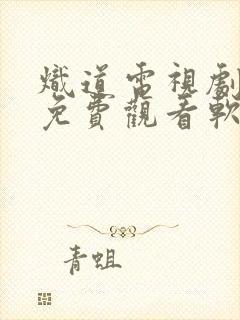 熾道電視劇
免費觀看軟
青蛆